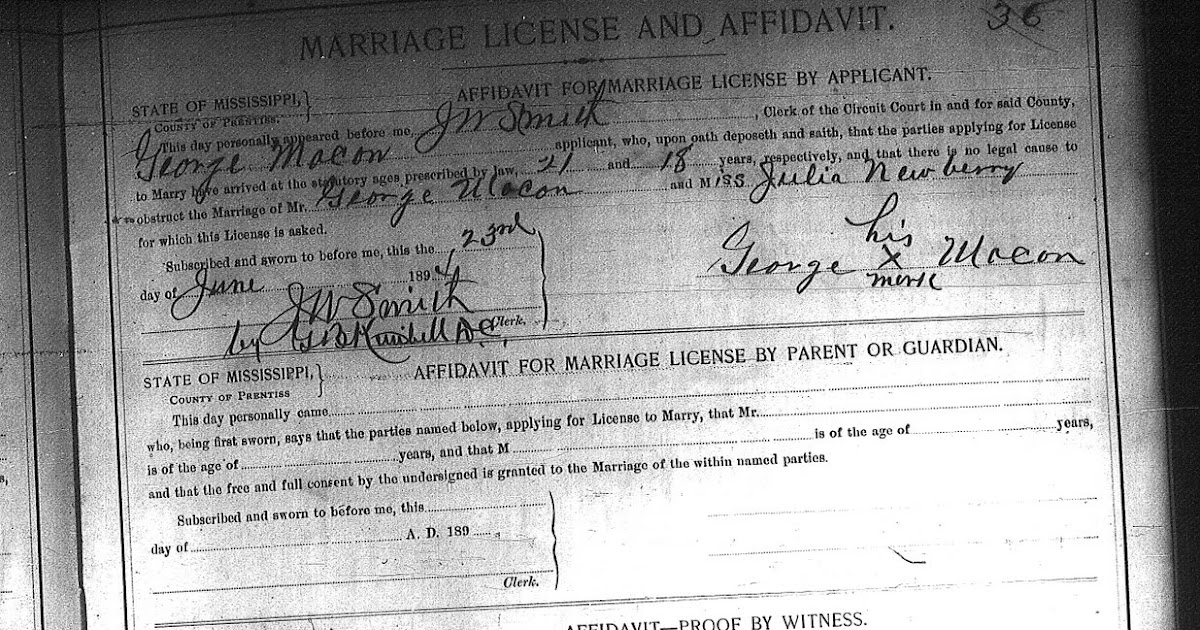 36
MARRIAGE LICENSE AND AFFIDAVIT.
AFFIDAVIT FOR MARRIAGE LICENSE BY APPLICANT.
STATE OF MISSISSIPPI,
COUNTY OF PRENTISS.
This day personally appeared before me, J W Smith, Clerk of the Circuit Court in and for said County,
George Macon applicant, who, upon oath deposeth and saith, that the parties applying for License
to Marry have arrived at the statutory ages prescribed by law, 21 and 18 years, respectively, and that there is no legal cause to
obstruct the Marriage of Mr. George Macon and Miss Julia Newberry
for which this License is asked.
Subscribed and sworn to before me, this the 23rd
day of June 1894
J W Smith
by Clerk.
his
George X Macon
mark
AFFIDAVIT FOR MARRIAGE LICENSE BY PARENT OR GUARDIAN.
STATE OF MISSISSIPPI,
COUNTY OF PRENTISS
This day personally came
who, being first sworn, says that the parties named below, applying for License to Marry, that Mr.
is of the age of years, and that M is of the age of years,
and that the free and full consent by the undersigned is granted to the Marriage of the within named parties.
Subscribed and sworn to before me, this
day of A. D. 189
Clerk.
AFFIDAVIT—PROOF BY WITNESS.